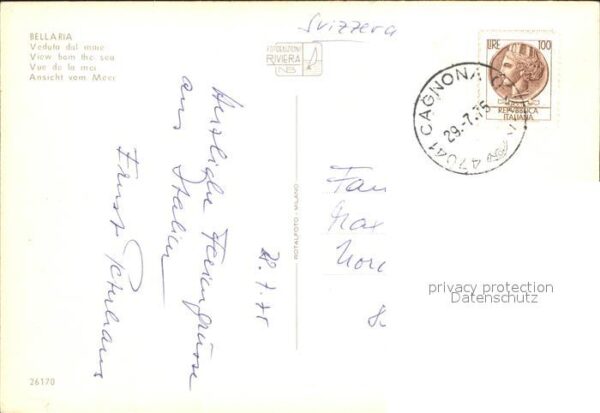 BELLARIA
Veduta dal mare
View from the sea
Vue de la mer
Ansicht vom Meer
EDIZIONI
RIVIERA
Svizzera
LIRE 100
REPUBBLICA
ITALIANA
47041 CAGNONA
29.-7.75
Herzliche Feriengrüsse
aus Italien
Ernst
28.7.75
ROTALFOTO - MILANO
Fam
Max
privacy protection
Datenschutz
26170